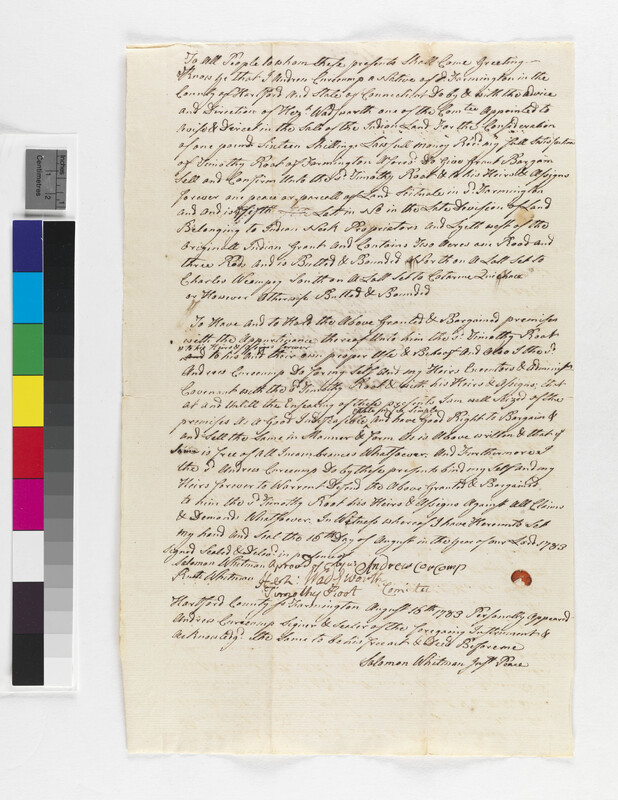 To All People to whom these presents Shall Come Greeting—
Know ye that I Andrew Corcomp a Native of Farmington in the
County of Hartford And State of Connecticut Do by & with the Advice
and Direction of Hezh Wadsworth one of the Comtee Appointed to
Advise & Direct in the Sale of the Indian Land For the Consideration
of one pound Sixteen Shillings Lawfull money Recd my full Satisfaction
of Timothy Root of Farmington Aforesd Do Give Grant Bargain
Sell and Confirm Unto the sd Timothy Root & to his Heirs & Assigns
forever one peace or parcell of Land Scituate in sd Farmington
and and is Fifth Lot in No in the Late Division of Land
Belonging to Indian Neck Proprietors and Lyeth west of the
Originall Indian Grant And Contains Two Acres one Rood and
three Rods And is Butted & Bounded North on A Lott Set to
Charles Wcompey South on A Lott Set to Catarine
or However Otherwise Butted & Bounded
To Have And to Hold the Above Granted & Bargained premises
with the Appurtenance thereof Unto him the sd Timothy Root
& to his Heirs & Assigns forever
And to his And their own proper Use & Behoof And Also I the sd
Andrew Corcomp Do for my Self And my Heirs Executors & Adminisrs
Covenant with the sd Timothy Root & with his Heirs & Assigns, that
at And Untill the Ensealing of these presents I am well Seized of the
premises As A Good Indefeasible Estate in fee Simple And have Good Right to Bargain &
And Sell the Same in Manner & Form As is Above written & that ye
Same is free of All Incumbrances Whatsoever. And Furthermore I
the sd Andrew Corcomp Do by these presents bind my Self and my
Heirs forever to Warrent Defend the Above Granted & Bargained
to him the sd Timothy Root his Heirs & Assigns Against All Claims
& Demands Whatsoever. In Witness whereof I have Hereunto Set
my hand and Seal the 16th Day of August in the year of our Lord. 1783
Signed Sealed & Delivd in presence of
Solomon Whitman Andrew Corcomp
Ruth Whitman Hezh Wadsworth
Timothy Root Comitee
Hartford County ss Farmington August 16th 1783 Personally Appeared
Andrew Corcomp Signer & Sealer of the foregoing Instrument &
Acknowledgd the Same to be his free Act & Deed Before me
Solomon Whitman Just Peace
Inches
1
2
Centimetres